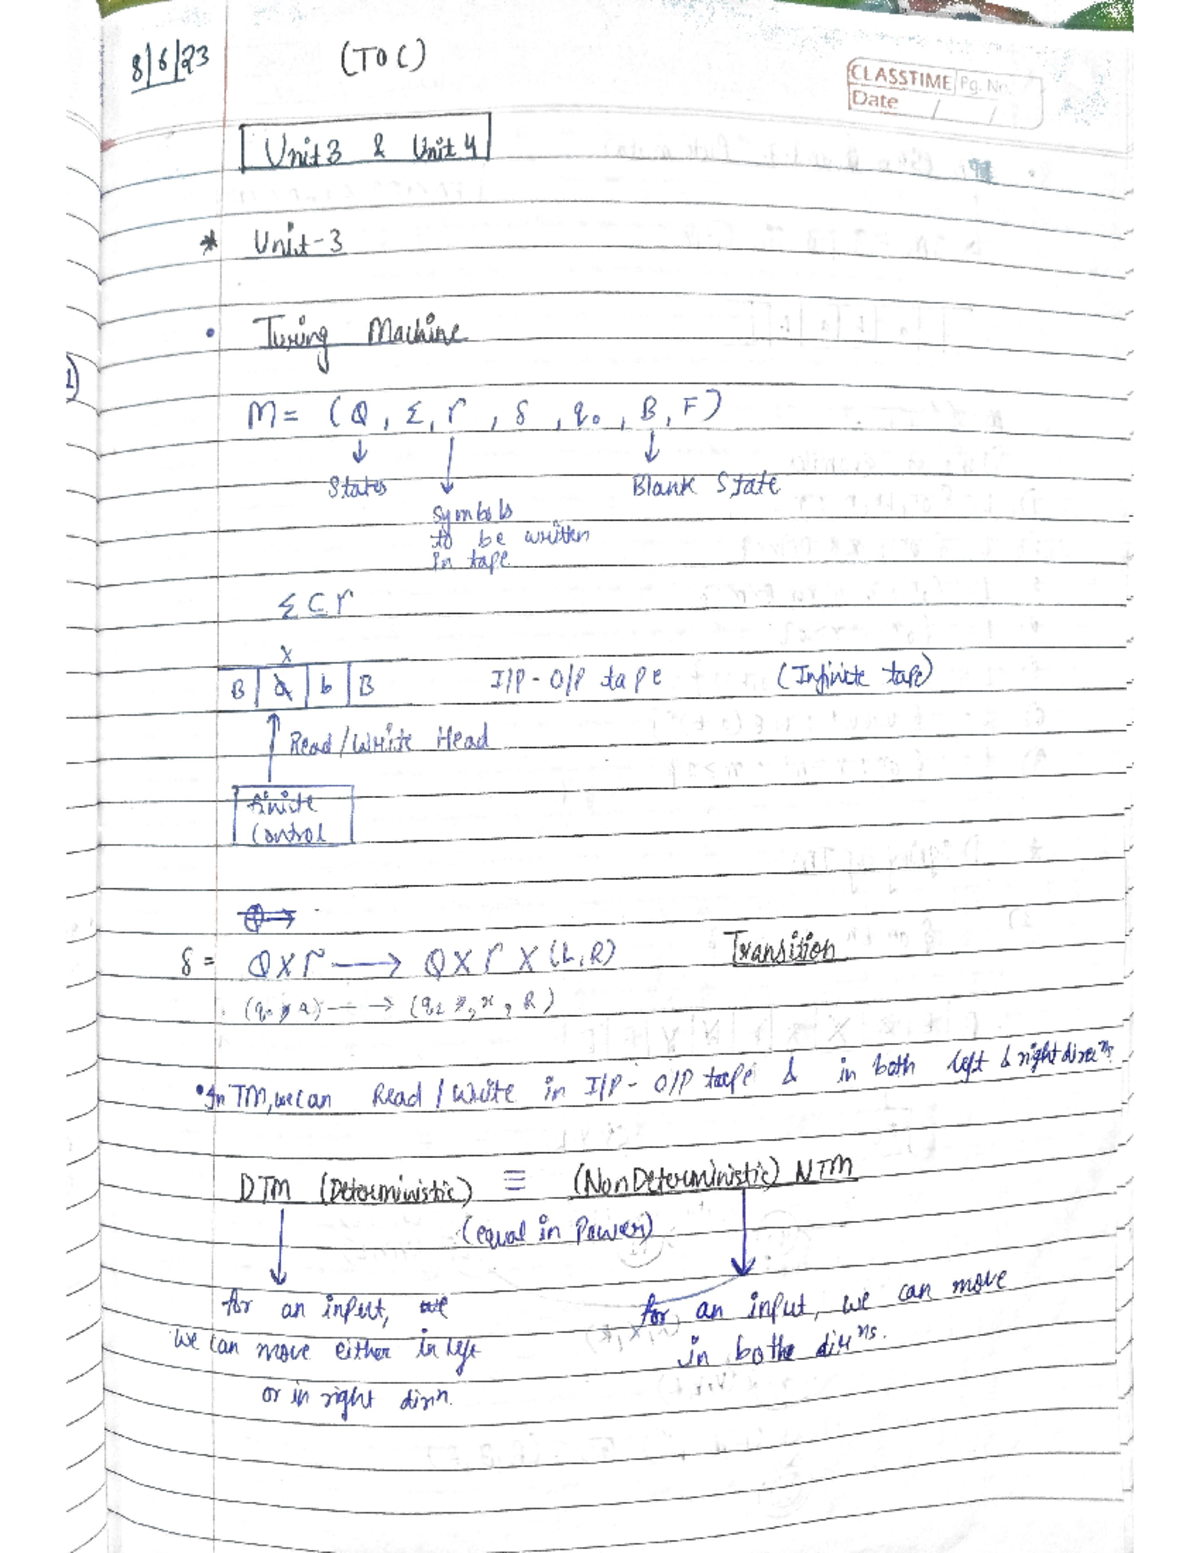 8/6/23
(TOC)
CLASSTIME Pg. No.
Date / /
Unit 3 & Unit 4
* Unit-3
• Turing Machine
1)
M = (Q, Σ, Γ, δ, q₀, B, F)
States
Blank State
Symbols
to be written
in tape
Σ ⊆ Γ
X
B a b B I/P - O/P tape (Infinite tape)
Read/Write Head
finite
Control
δ = Q X Γ → Q X Γ X (L, R) Transition
• In TM, we can Read / Write in I/P - O/P tape & in both left & right direcⁿs
DTM (Deterministic) ≡ (NonDeterministic) NTM
(equal in Power)
for an input, we
we can move either in left
or in right dirⁿ.
for an input, we can move
in both dirⁿs.